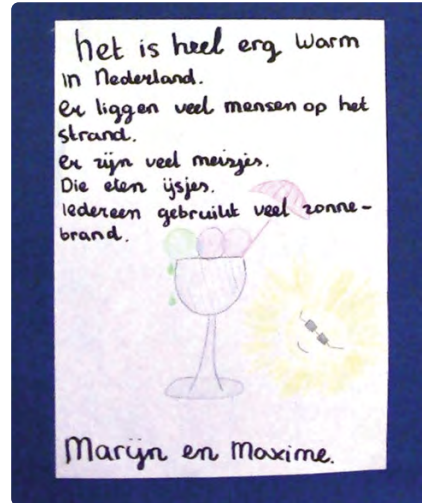 het is heel erg warm
in Nederland.
Er liggen veel mensen op het
strand.
Er zijn veel meisjes.
Die eten ijsjes.
Iedereen gebruikt veel zonne-
brand.
Marijn en Maxime.